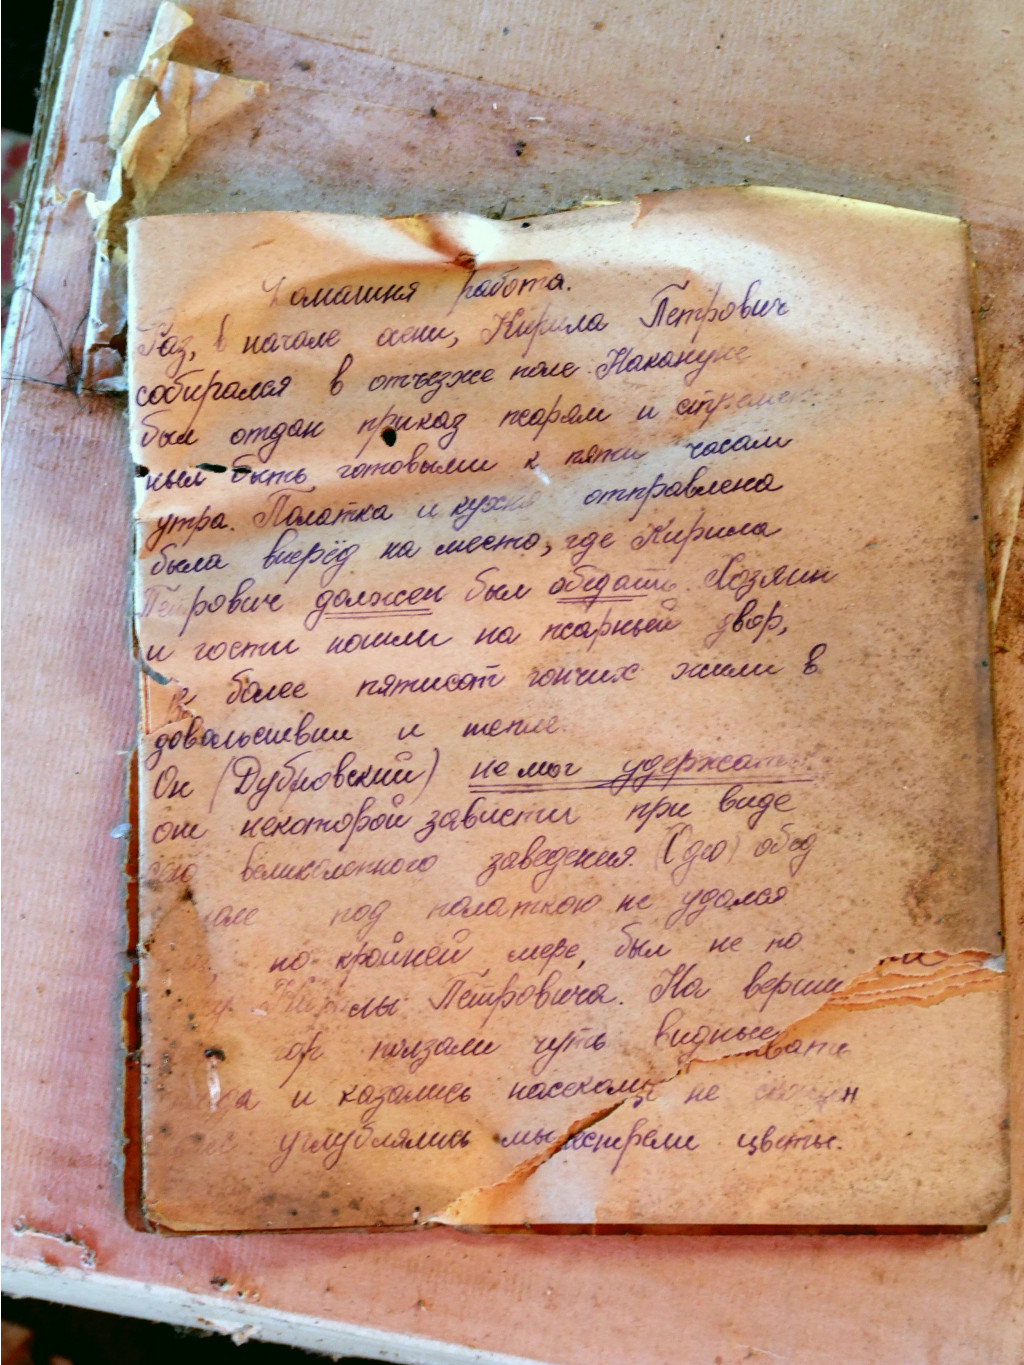 Домашня работа.
Раз, в начале осени, Кирила Петрович
собирался в отъезже поле. Накануне
был отдан приказ псарям и стремен
ным быть готовыми к пяти часам
утра. Палатка и кухня отправлена
была вперёд на место, где Кирила
Петрович должен был обедать. Хозяин
и гости пошли на псарный двор,
более пятисот гончих жили в
довольствии и тепле.
Он (Дубровский) не мог удержать
от некоторой зависти при виде
сего великолепного заведения. (дю) обед
под палаткою не удался
по крайней мере, был не по
Кирилы Петровича. На верши
гор ползали чуть видные
и казались насекомы не
углублялись мы цветы.